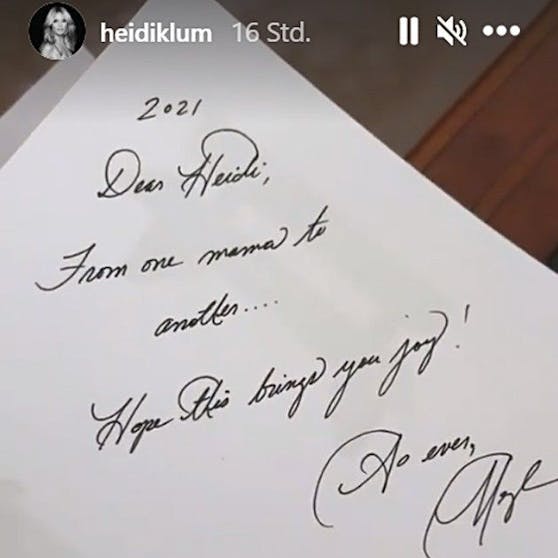 heidiklum 16 Std.
2021
Dear Heidi,
From one mama to
another....
Hope this brings you joy!
As ever,